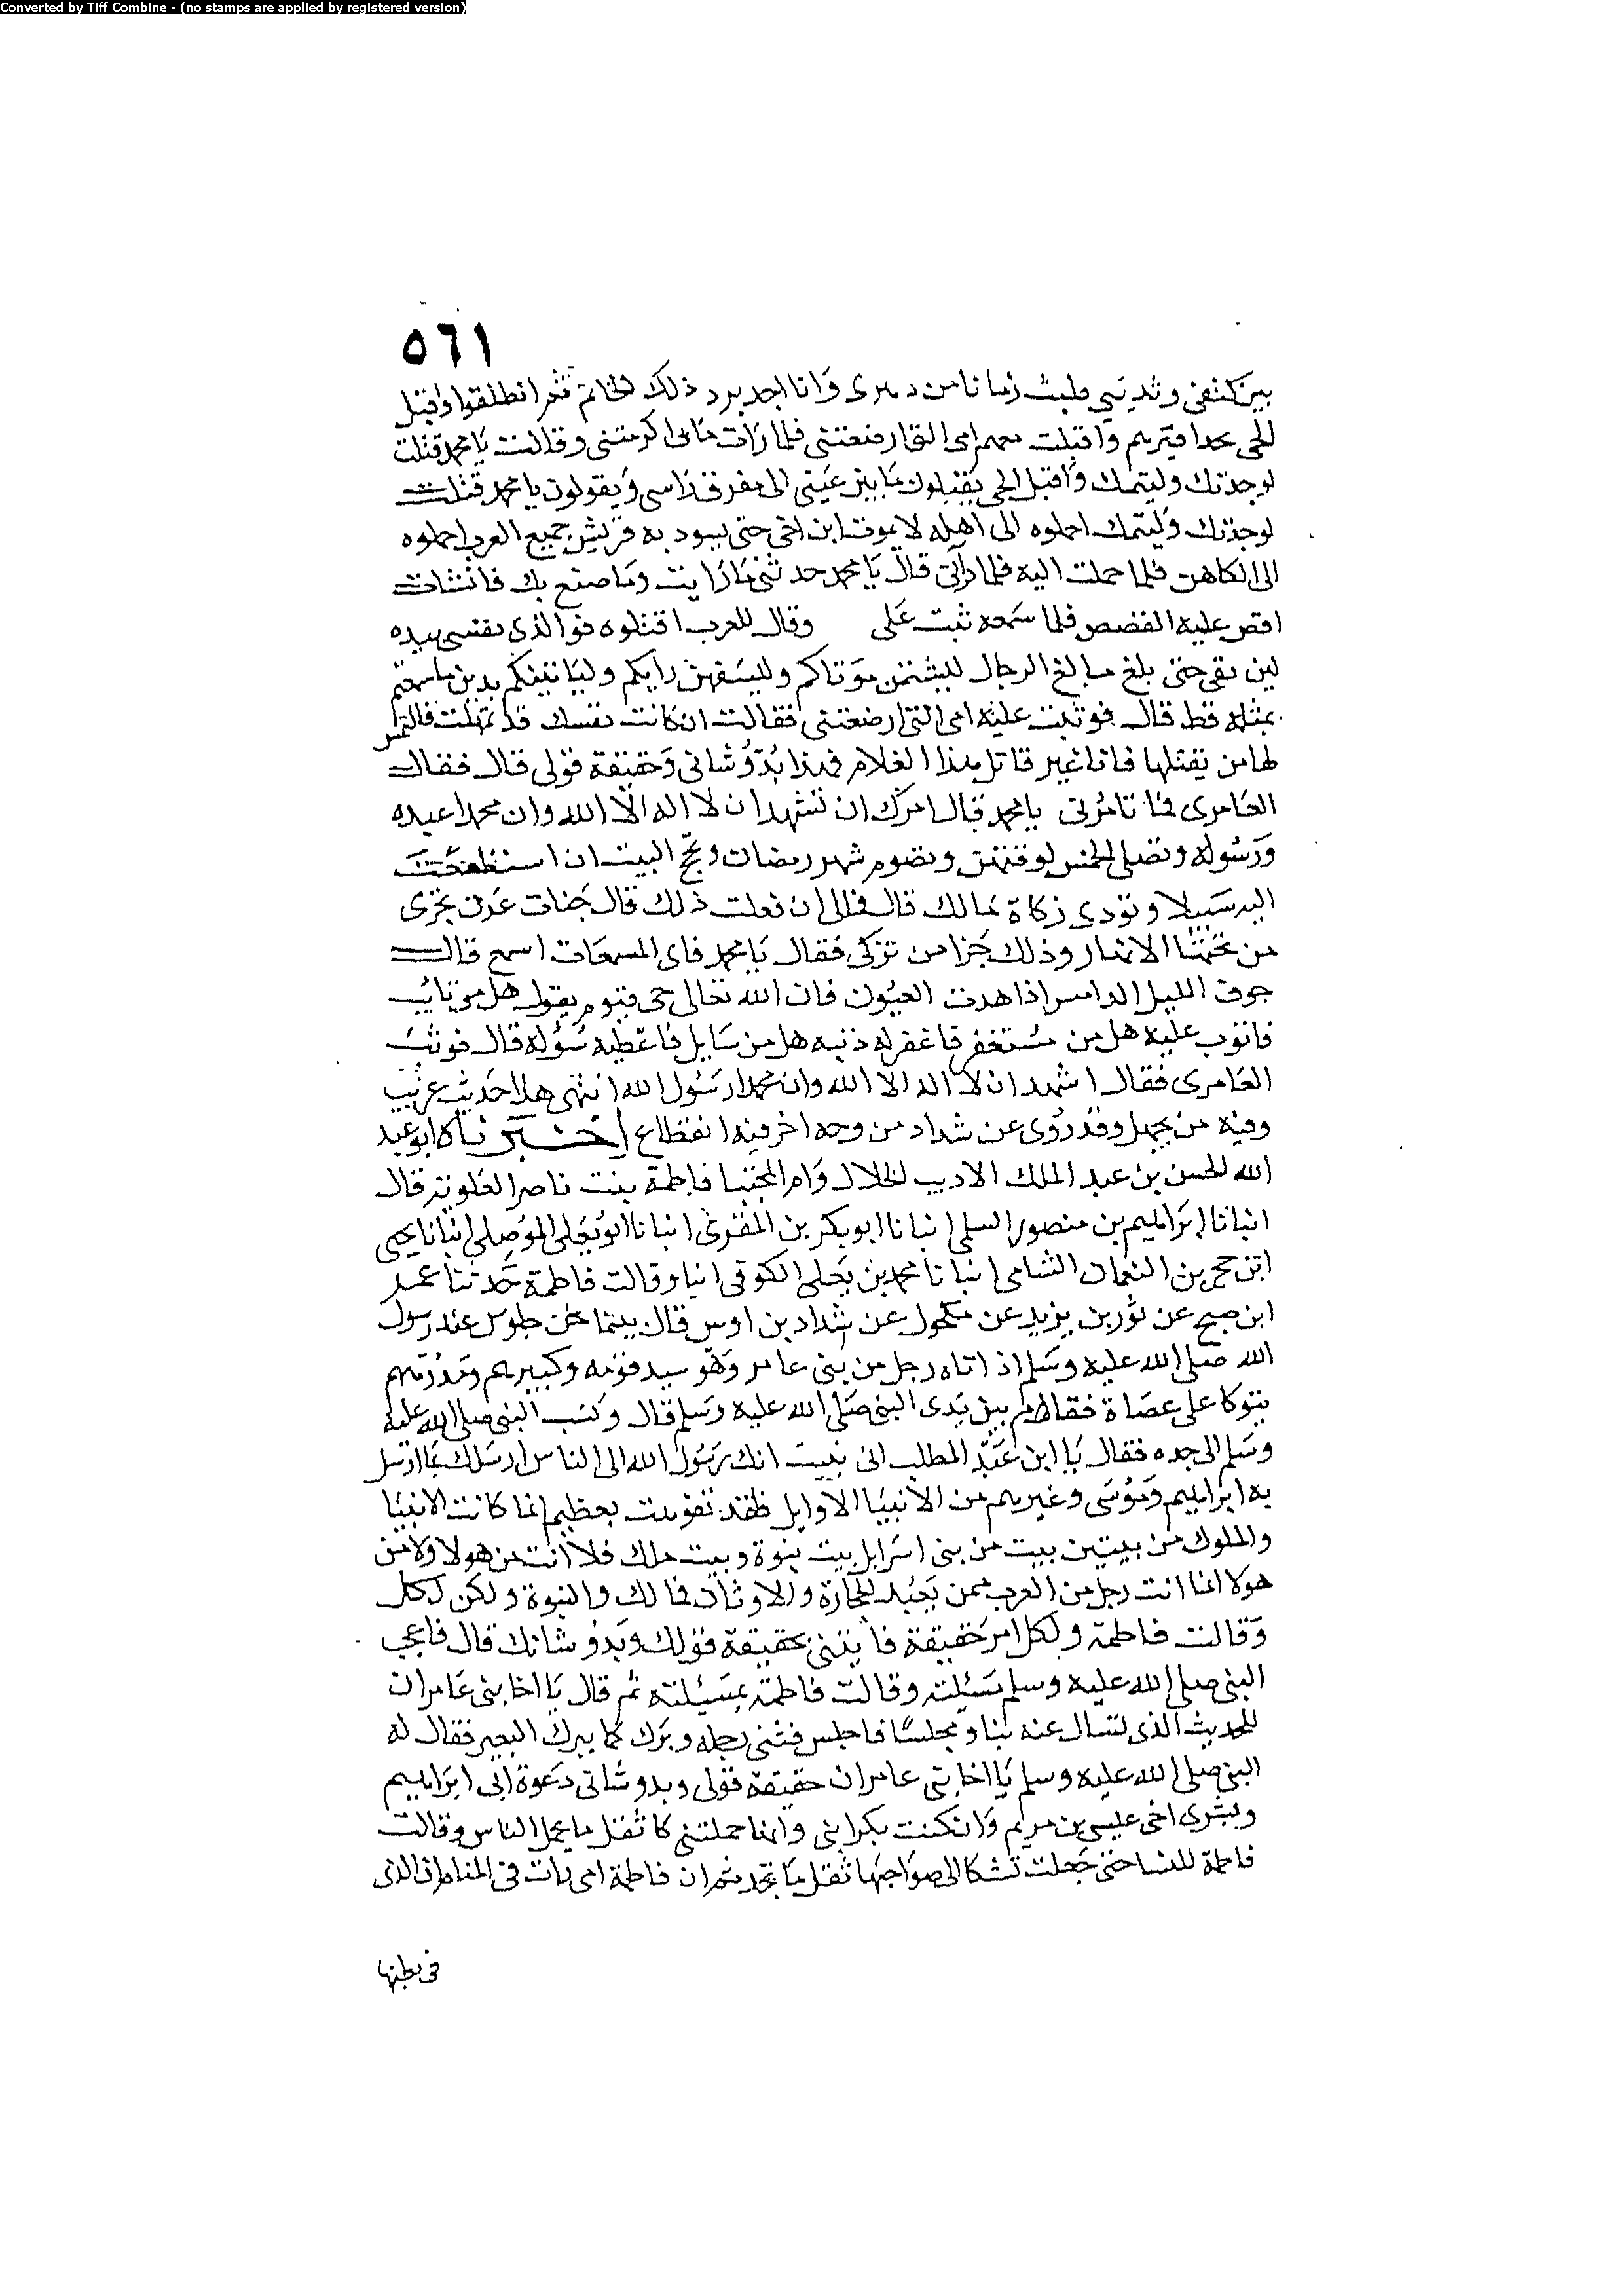 Converted by Tiff Combine - (no stamps are applied by registered version)
٥٦١
بين كتفي وثديي فلبثت زمانا من دهري وانا اجد برد ذلك الخاتم ثم انطلقوا واقبل
الحي بحذافيرهم واقبلت معهم امي التي ارضعتني فلما رات ما بي اكرمتني وقالت يا محمد قتلت
لوحدتك وليتمك واقبل الحي يقبلون ما بين عيني الى مفرق راسي ويقولون يا محمد قتلت
لوحدتك وليتمك احملوه الى اهله لا يموت ابن اخي حتى يسود به قريش جميع العرب احملوه
الى الكاهن فلما حملت اليه فلما راني قال يا محمد حدثني ما رايت وما صنع بك فانشات
اقص عليه القصص فلما سمعه ثبت على وقال للعرب اقتلوه فوالذي نفسي بيده
لين بقي حتى بلغ مبالغ الرجال ليشتمن موتاكم وليسفهن رايكم ولياتينكم بدين ما سمعتم
بمثله قط قال فوثبت عليه امي التي ارضعتني فقالت ان كانت نفسك قد فالتمس
لها من يقتلها فانا غير قاتل هذا الغلام فهذا بدو شاني وحقيقة قولي قال فقال
العامري فما تامرني يا محمد قال امرك ان تشهد ان لا اله الا الله وان محمدا عبده
ورسوله وتصلي الخمس لوقتهن وتصوم شهر رمضان وتحج البيت ان استطعت
اليه سبيلا وتودي زكاة مالك قال فمالي ان فعلت ذلك قال جنات عدن تجري
من تحتها الانهار وذلك جزا من تزكى فقال يا محمد فاي المسمعات اسمع قال
جوف الليل الدامس اذا هدت العيون فان الله تعالى حي قيوم يقول هل من تايب
فاتوب عليه هل من مستغفر فاغفر له ذنبه هل من سايل فاعطيه سؤله قال فوثب
العامري فقال اشهد ان لا اله الا الله وان محمدا رسول الله انتهى هذا حديث غريب
وفيه من يجهل وقد روي عن شداد من وجه اخر فيه انقطاع اخبرناه ابو عبد
الله الحسن بن عبد الملك الاديب الخلال وام المجتبا فاطمة بنت ناصر العلوية قال
انبانا ابراهيم بن منصور السلمي انبانا ابو بكر بن المقري انبانا ابو يعلى الموصلي انبانا يحيى
ابن حجر بن النعمان الشامي انبانا محمد بن يعلى الكوفي انبا وقالت فاطمة حدثنا عمر
ابن صبح عن ثور بن يزيد عن مكحول عن شداد بن اوس قال بينما نحن جلوس عند رسول
الله صلى الله عليه وسلم اذ اتاه رجل من بني عامر وهو سيد قومه وكبيرهم ومدرههم
يتوكا على عصاة فقام بين يدي النبي صلى الله عليه وسلم قال ونسب النبي صلى الله عليه
وسلم الى جده فقال يا ابن عبد المطلب اني نبيت انك رسول الله الى الناس ارسلك بما ارسل
به ابراهيم وموسى وغيرهم من الانبيا الاوايل فلقد تفوهت بعظيم انما كانت الانبيا
والملوك من بيتين بيت من بني اسرايل بيت نبوة وبيت ملك فلا انت من هولا ولا من
هولا انما انت رجل من العرب ممن يعبد الحجارة والاوثان فما لك والنبوة ولكن لكل
وقالت فاطمة ولكل امر حقيقة فايتني بحقيقة قولك وبدو شانك قال فاعجب
النبي صلى الله عليه وسلم مسئلته وقالت فاطمة بمسئلته ثم قال يا اخا بني عامر ان
للحديث الذي تسال عنه نبا ومجلسا فاجلس فثنى رجله وبرك كما يبرك البعير فقال له
النبي صلى الله عليه وسلم يا اخا بني عامر ان حقيقة قولي وبدو شاني دعوة ابي ابراهيم
وبشرى اخي عيسى بن مريم واني كنت بكر امي وانها حملتني كاثقل ما يحمل الناس وقالت
فاطمة للنسا حتى جعلت تشكا الى صواحبها ثقل ما تجد ثم ان فاطمة امي رات في المنام ان الذي
في بطنها